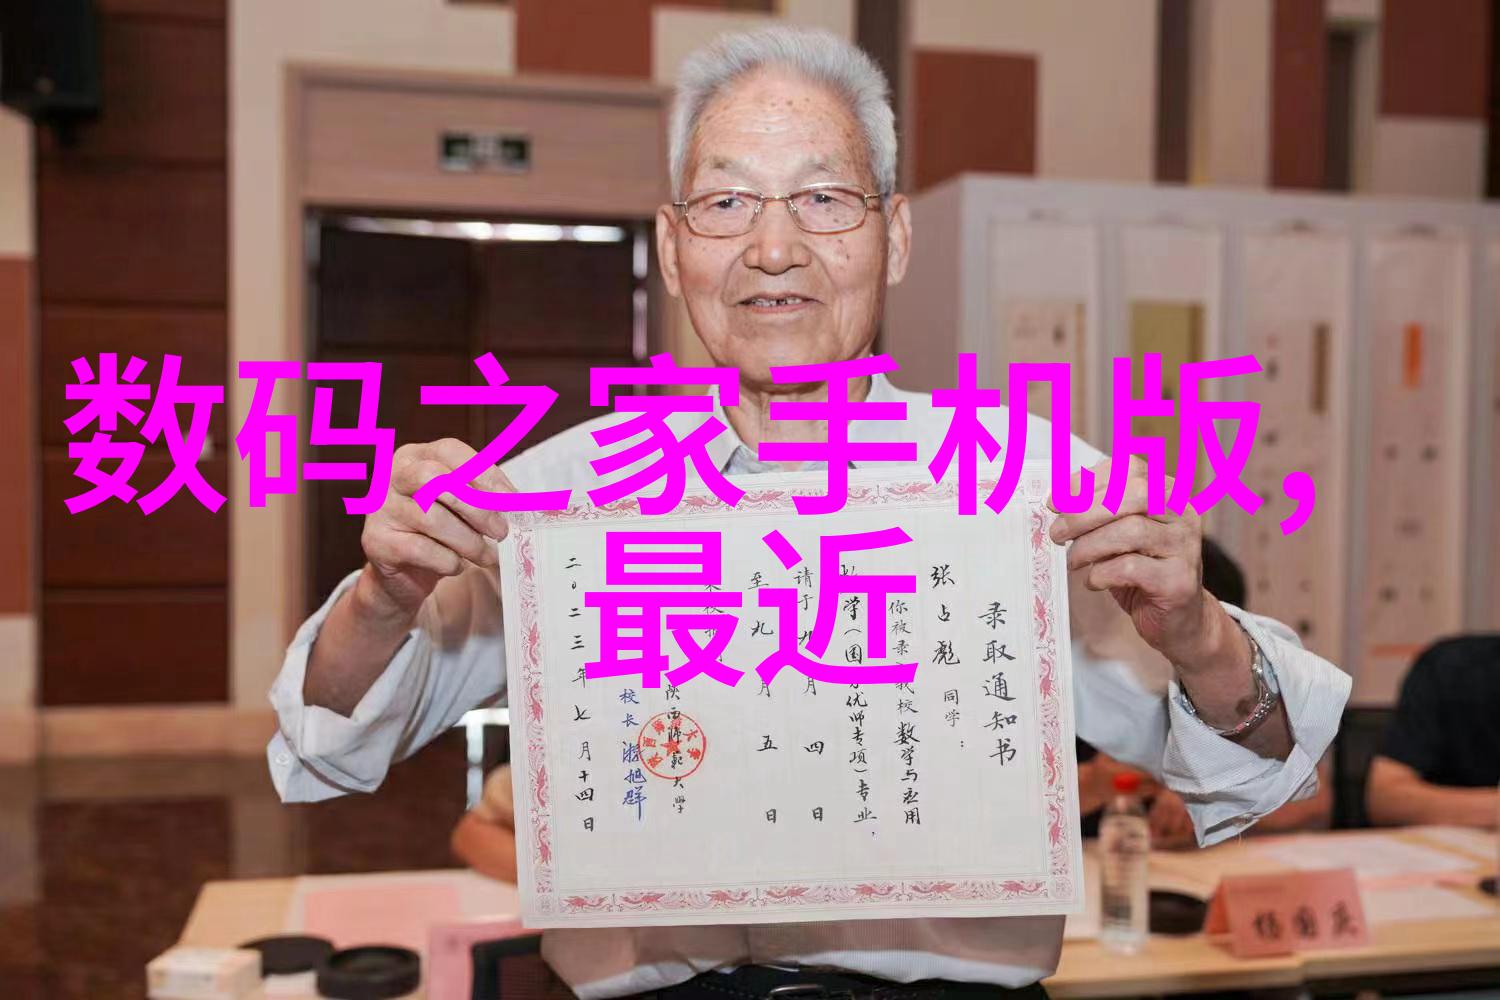 数码之家手机版,
最近
录取通知书
张占彪 同学:
你被录 我校 数学与应用
学(国 优师专项)专业,
请于九月四日
至九月五日
陕西师范大学
校长 游旭群
二〇二三年七月十四日
杨国庆